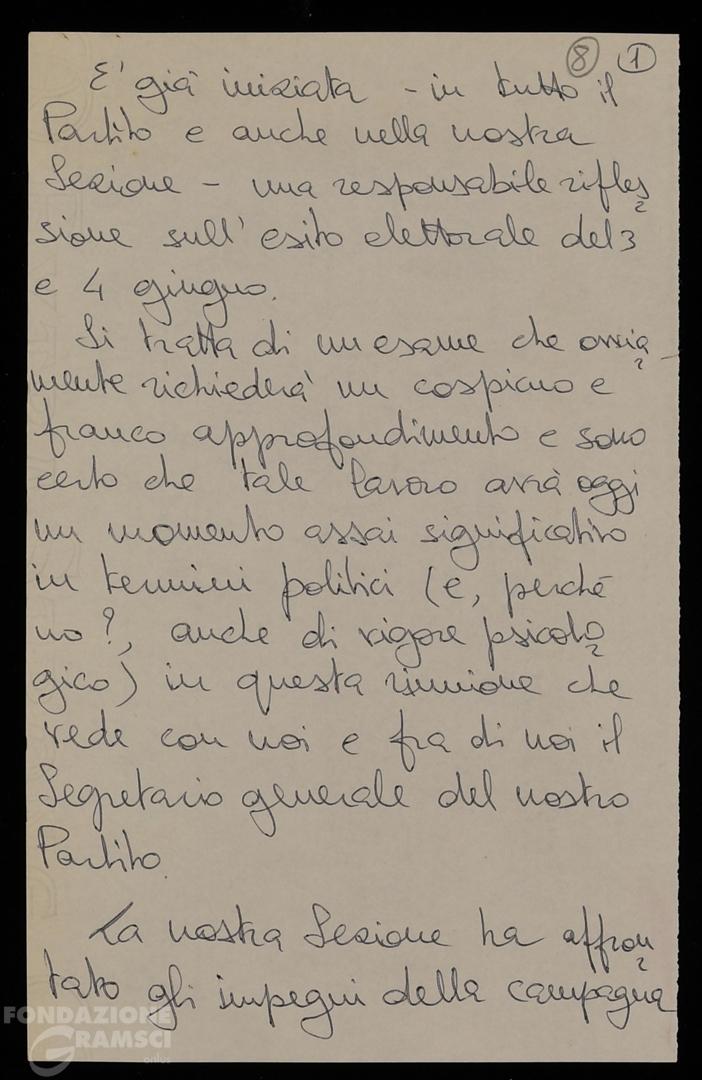 8 1
E' già iniziata - in tutto il
Partito e anche nella nostra
Sezione - una responsabile rifles
sione sull'esito elettorale del 3
e 4 giugno.
Si tratta di un esame che ovvia
mente richiederà un cospicuo e
franco approfondimento e sono
certo che tale lavoro avrà oggi
un momento assai significativo
in termini politici (e, perché
no?, anche di rigore psicolo
gico) in questa riunione che
vede con noi e fra di noi il
Segretario generale del nostro
Partito.
La nostra Sezione ha affron
tato gli impegni della campagna
FONDAZIONE
GRAMSCI
onlus